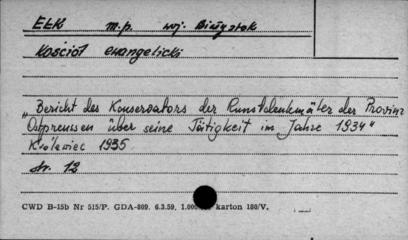 EŁK m.p. woj. Białystok
Kościół ewangelicki
"Bericht des Konservators der Kunstdenkmäler der Provinz
Ostpreussen über seine Tätigkeit im Jahre 1934"
Królewiec 1935
str. 12
CWD B-15b Nr 515/P. GDA-809. 6.3.59. karton 180/V.